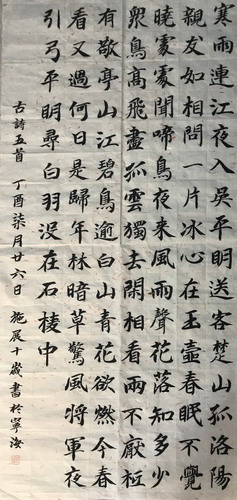 寒雨連江夜入吳平明送客楚山孤洛陽
親友如相問一片冰心在玉壺春眠不覺
曉處處聞啼鳥夜來風雨聲花落知多少
衆鳥高飛盡孤雲獨去閑相看兩不厭
有敬亭山江碧鳥逾白山青花欲燃今春
看又過何日是歸年林暗草驚風將軍夜
引弓平明尋白羽没在石棱中
古詩五首 丁酉柒月廿六日 施展十歲書於寧海